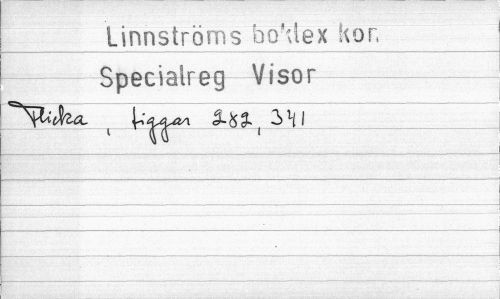 Linnströms boklex kor.
Specialreg Visor
Flicka, tiggar 282, 341